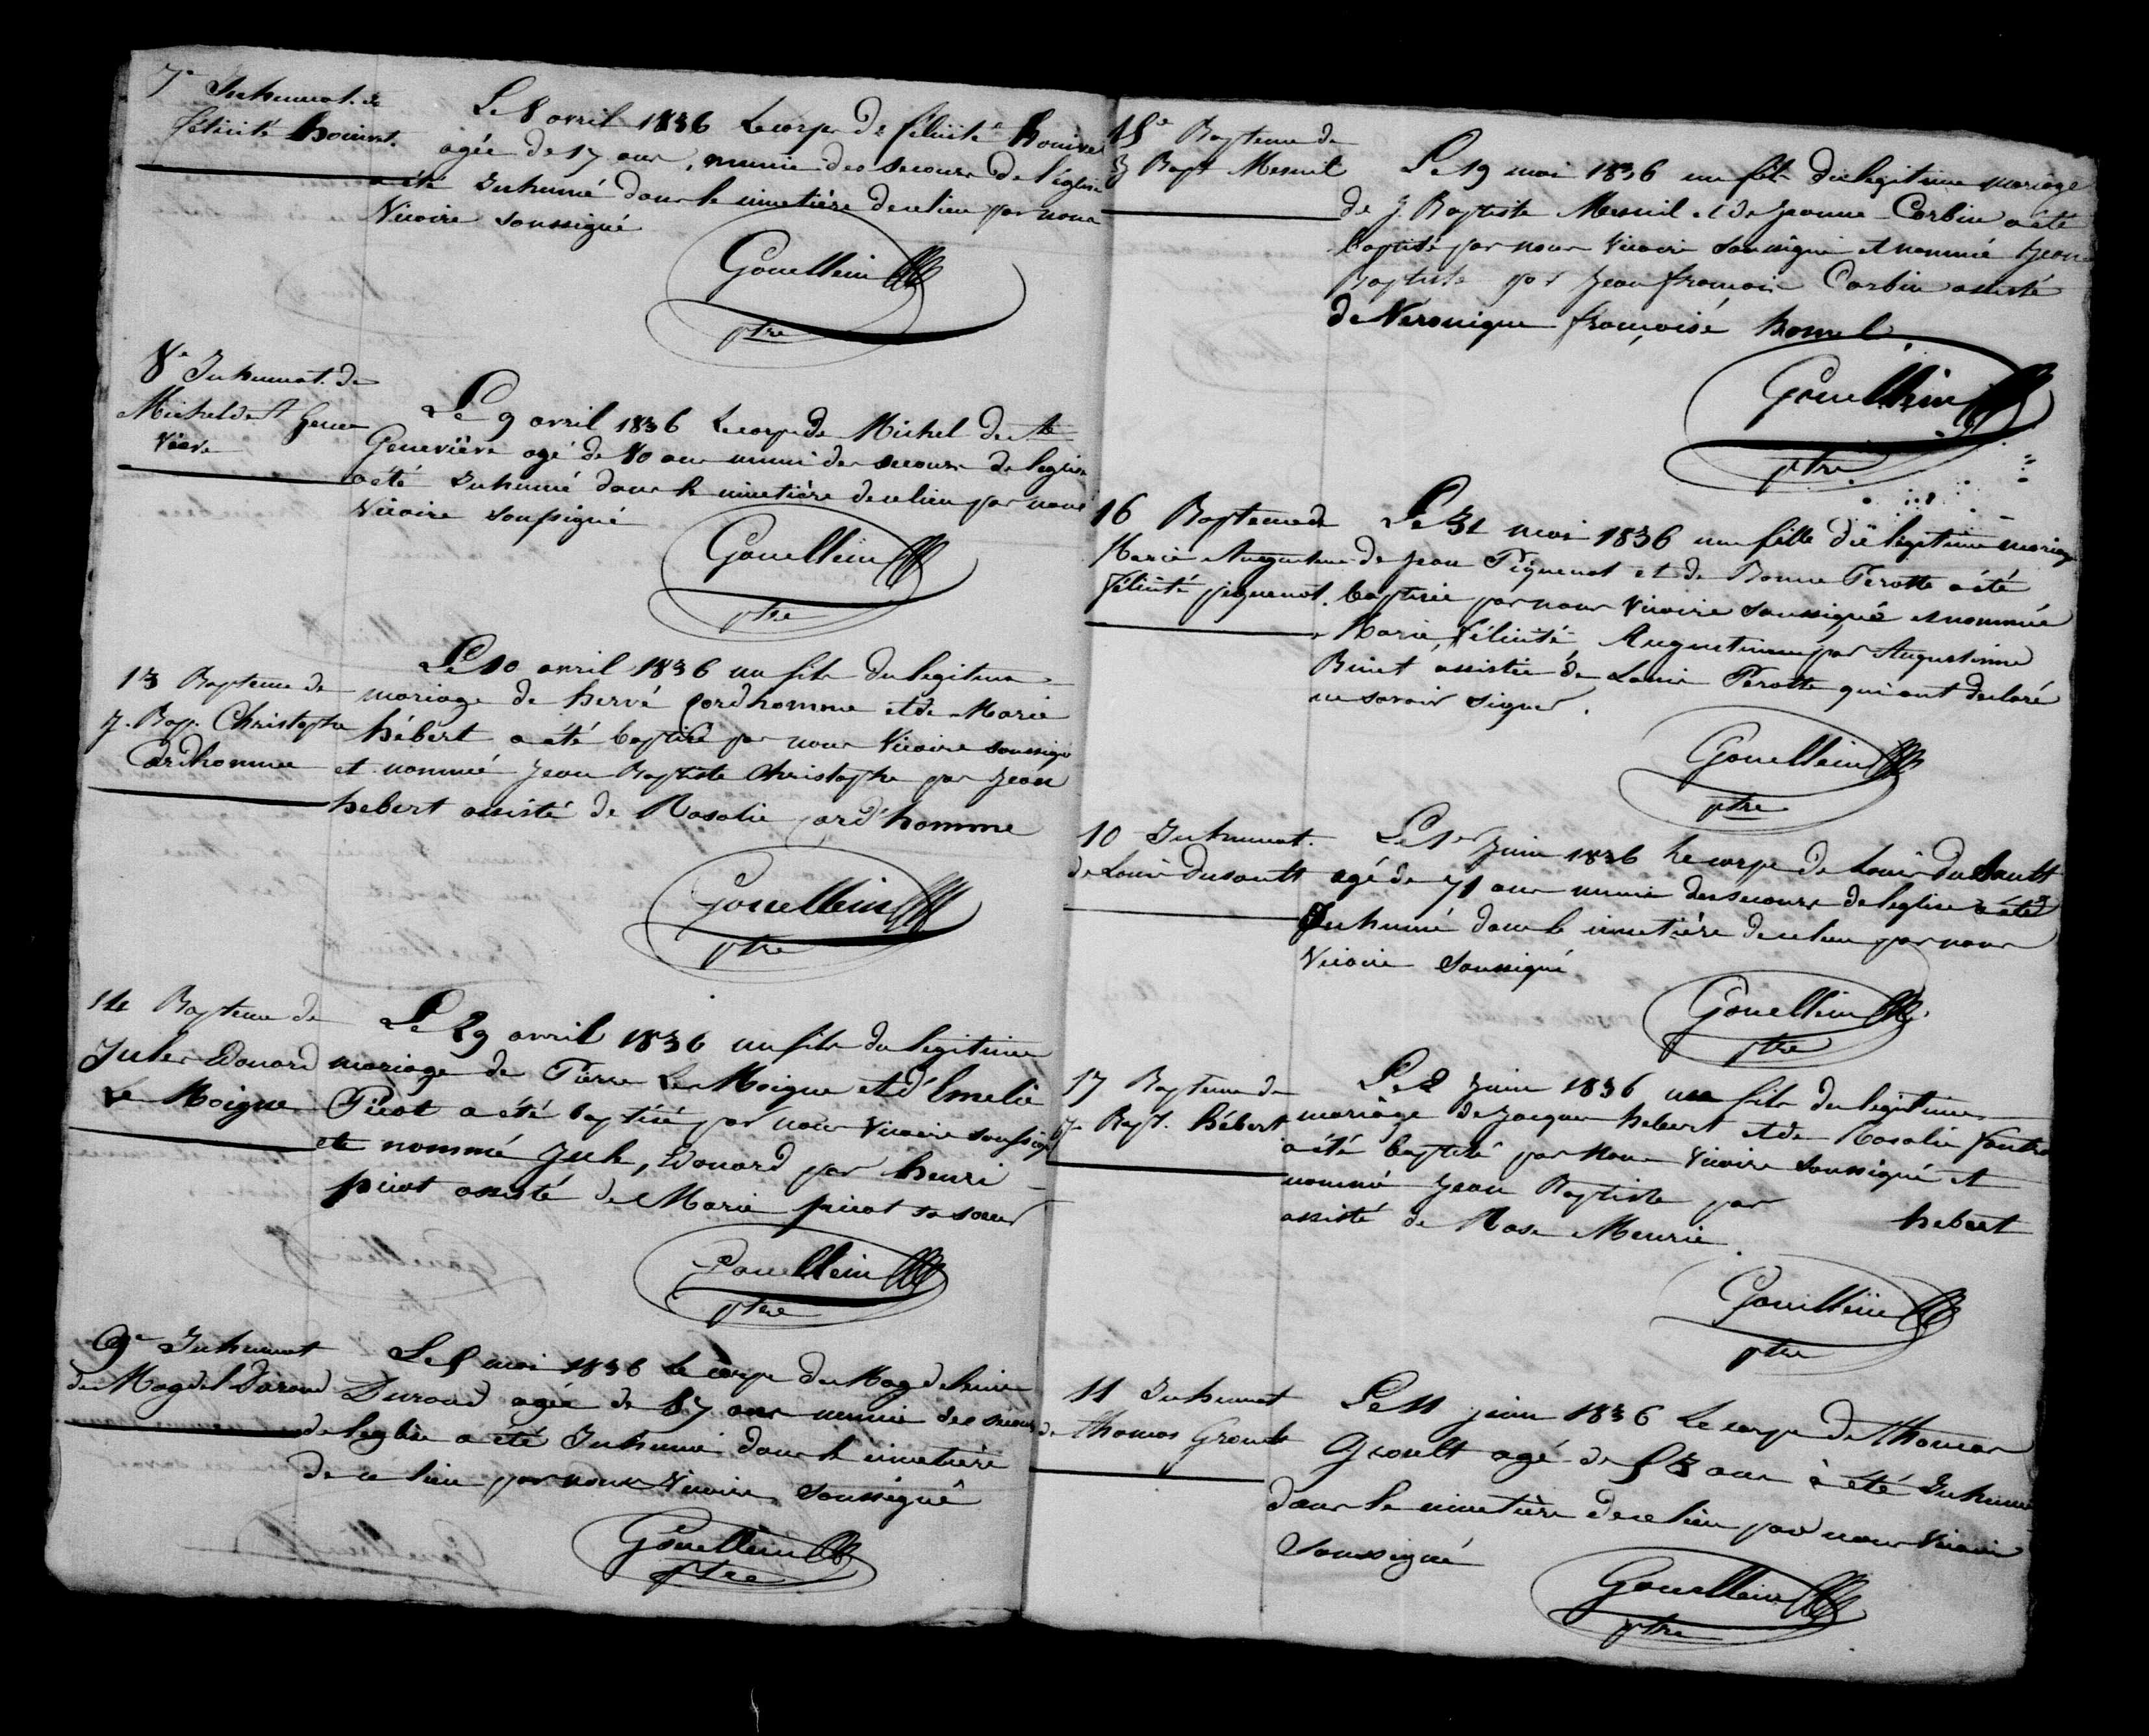 7e Inhumat. de
félicité houivet.
Le 8 avril 1836 Le corps de félicité houivet
agée de 17 ans, munie des secours de l'église
a été Inhumé dans le cimetière de ce lieu par nous
Vicaire soussigné
Gouellein
ptre
8e Inhumat. de
Michel de Ste Gene
viève
Le 9 avril 1836 Le corps de Michel de Ste
Geneviève agé de 80 ans muni des secours de l'eglise
a été Inhumé dans le cimetière de ce lieu par nous
Vicaire soussigné
Gouellein
ptre
13 Bapteme de
J. Bap. Christophe
Cordhomme
Le 10 avril 1836 un fils du legitime
mariage de hervé Cordhomme et de Marie
hébert a été baptisé par nous Vicaire soussigné
et nommé Jean Baptiste Christophe par Jean
hebert assisté de Rosalie Cord'homme
Gouellein
ptre
14 Bapteme de
Jules Edouard
Le Moigne
Le 29 avril 1836 un fils du legitime
mariage de Pierre Le Moigne et d'Emelie
Picot a été baptisé par nous Vicaire soussigné
et nommé Jules, Edouard par henri
picot assisté de Marie picot sa soeur
Gouellein
ptre
9e Inhumat
de Magdel. Durand
Le 5 mai 1836 Le corps de Magdeleine
Durand agée de 87 ans munie des secours
de l'eglise a été Inhumé dans le cimetière
de ce lieu par nous Vicaire soussigné
Gouellein
ptre
15e Bapteme de
J Bapt Mesnil
Le 19 mai 1836 un fils du legitime mariage
de J. Baptiste Mesnil et de Jeanne Corbin a été
baptisé par nous Vicaire soussigné et nommé Jean
Baptiste par Jean françois Corbin assisté
de Véronique françoise hamel.
Gouellein
ptre
16 Bapteme de
Marie Augustine
félicité piquenot.
Le 31 mai 1836 une fille du légitime mariage
de Jean Piquenot et de Bonne Perotte a été
baptisée par nous Vicaire soussigné et nommée
Marie, félicité Augustine par Augustine
Binet assistée de Louis Perotte qui ont déclaré
ne savoir signer.
Gouellein
ptre
10 Inhumat.
de Louis Dusault
Le 1er Juin 1836 Le corps de Louis Du Sault
agé de 71 ans muni des secours de l'eglise a été
Inhumé dans le cimetière de ce lieu par nous
Vicaire soussigné
Gouellein
ptre
17 Bapteme de
J. Bapt. hébert
Le 2 Juin 1836 un fils du legitime
mariage de Jacques hebert et de Rosalie
a été baptisé par nous Vicaire soussigné et
nommé Jean Baptiste par hebert
assisté de Rose Meurie.
Gouellein
ptre
11 Inhumat
de Thomas Groult
Le 11 juin 1836 Le corps de Thomas
Groult agé de 53 ans à été Inhumé
dans le cimetière de ce lieu par nous Vicaire
soussigné
Gouellein
ptre